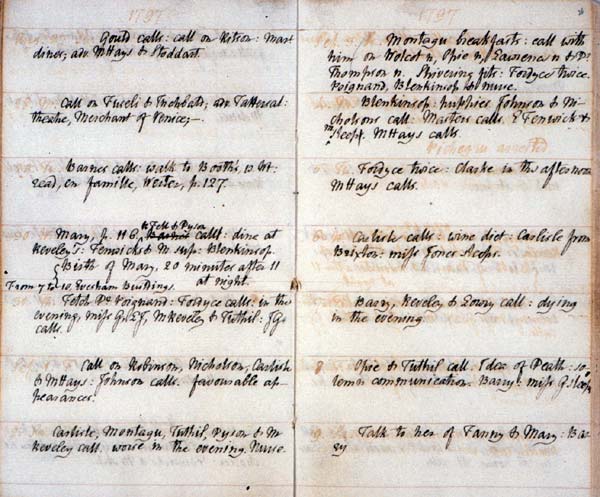 1797
Gould calls: call on Ritson: Mar
dines; adv. MHays & Stoddart.
Call on Fuseli & Inchbald; adv. Tattersal:
theatre, Merchant of Venice;—
Barnes calls: walk to Booth's, 10 br:
read, en famille, Werter, p. 127.
Mary, p. 116. Fell & Dyson
call: dine at
Reveley's: Fenwicks & M. sup: Blenkinsop.
Birth of Mary, 20 minutes after 11
at night.
From 7 to 10, Evesham Buildings.
Fetch Dr Poignand: Fordyce calls: in the
evening, miss G. & EJ, M Reveley & Tuthil:
calls.
Call on Robinson, Nicholson, Carlisle
& MHays: Johnson calls. favourable ap-
pearances.
Carlisle, Montagu, Tuthil, Dyson & M
Reveley call. worse in the evening. Nurse.
1797
Montagu breakfasts: call with
him on Wolcot n, Opie n, Lawrence n & Dr
Thompson n. Shivering fits: Fordyce twice.
Poignand, Blenkinsop & nurse.
Blenkinsop: puppies Johnson & Ni-
cholson: call: Masters calls. E Fenwick &
M sleep. MHays calls.
Pichegru arrested
Fordyce twice: Clarke in the afternoon
MHays calls.
Carlisle calls: wine diet: Carlisle from
Brixton: miss Jones sleeps.
Barry, Reveley & Lowry call: dying
in the evening
8. Opie & Tuthil call. Idea of Death: so-
lemn communication. Barry: miss G. sleeps
9. Talk to her of Fanny & Mary: Bar-
ry